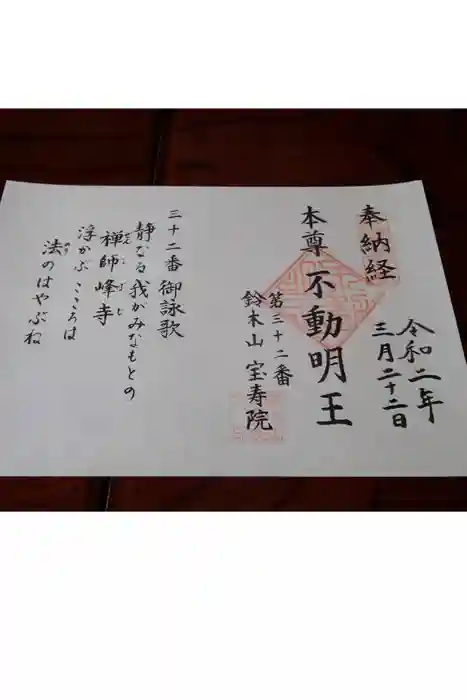 奉納経
令和二年
三月二十二日
本尊 不動明王
第三十二番
鈴木山 宝寿院
三十二番御詠歌
静なる我がみなもとの
禅師峰寺
ぜんじぶじ
浮かぶこころは
法のはやぶね
のり